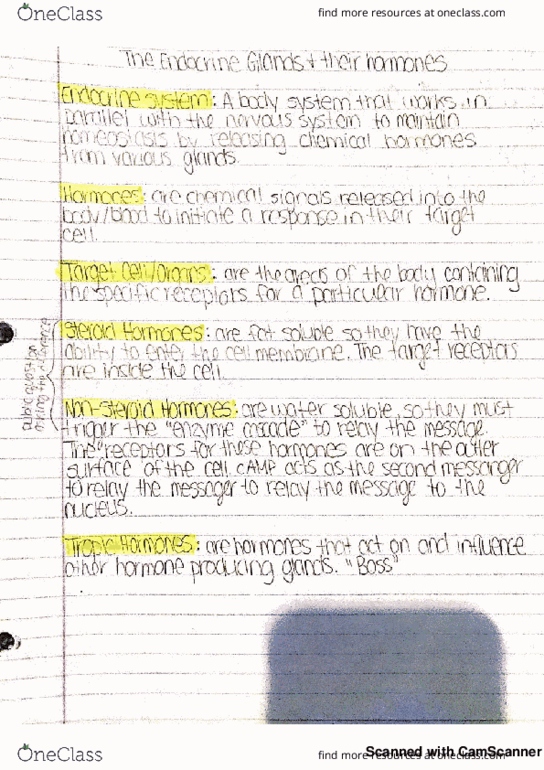 OneClass
find more resources at oneclass.com
The Endocrine Glands & their hormones
Endocrine system: A body system that works in
parallel with the nervous system to maintain
homeostasis by releasing chemical hormones
from various glands.
Hormones: are chemical signals released into the
body/blood to initiate a response in their target
cell.
Target Cell/Organs: are the areas of the body containing
the specific receptors for a particular hormone.
Steroid Hormones: are fat soluble so they have the
ability to enter the cell membrane. The target receptors
are inside the cell.
question
the difference
Non-Steroid Hormones: are water soluble, so they must
trigger the "enzyme cascade" to relay the message.
The receptors for these hormones are on the outer
surface of the cell. cAMP acts as the second messanger
to relay the messager to relay the message to the
nucleus.
Tropic Hormones: are hormones that act on and influence
other hormone producing glands. "Boss"
OneClass
find more resources at oneclass.com
Scanned with CamScanner